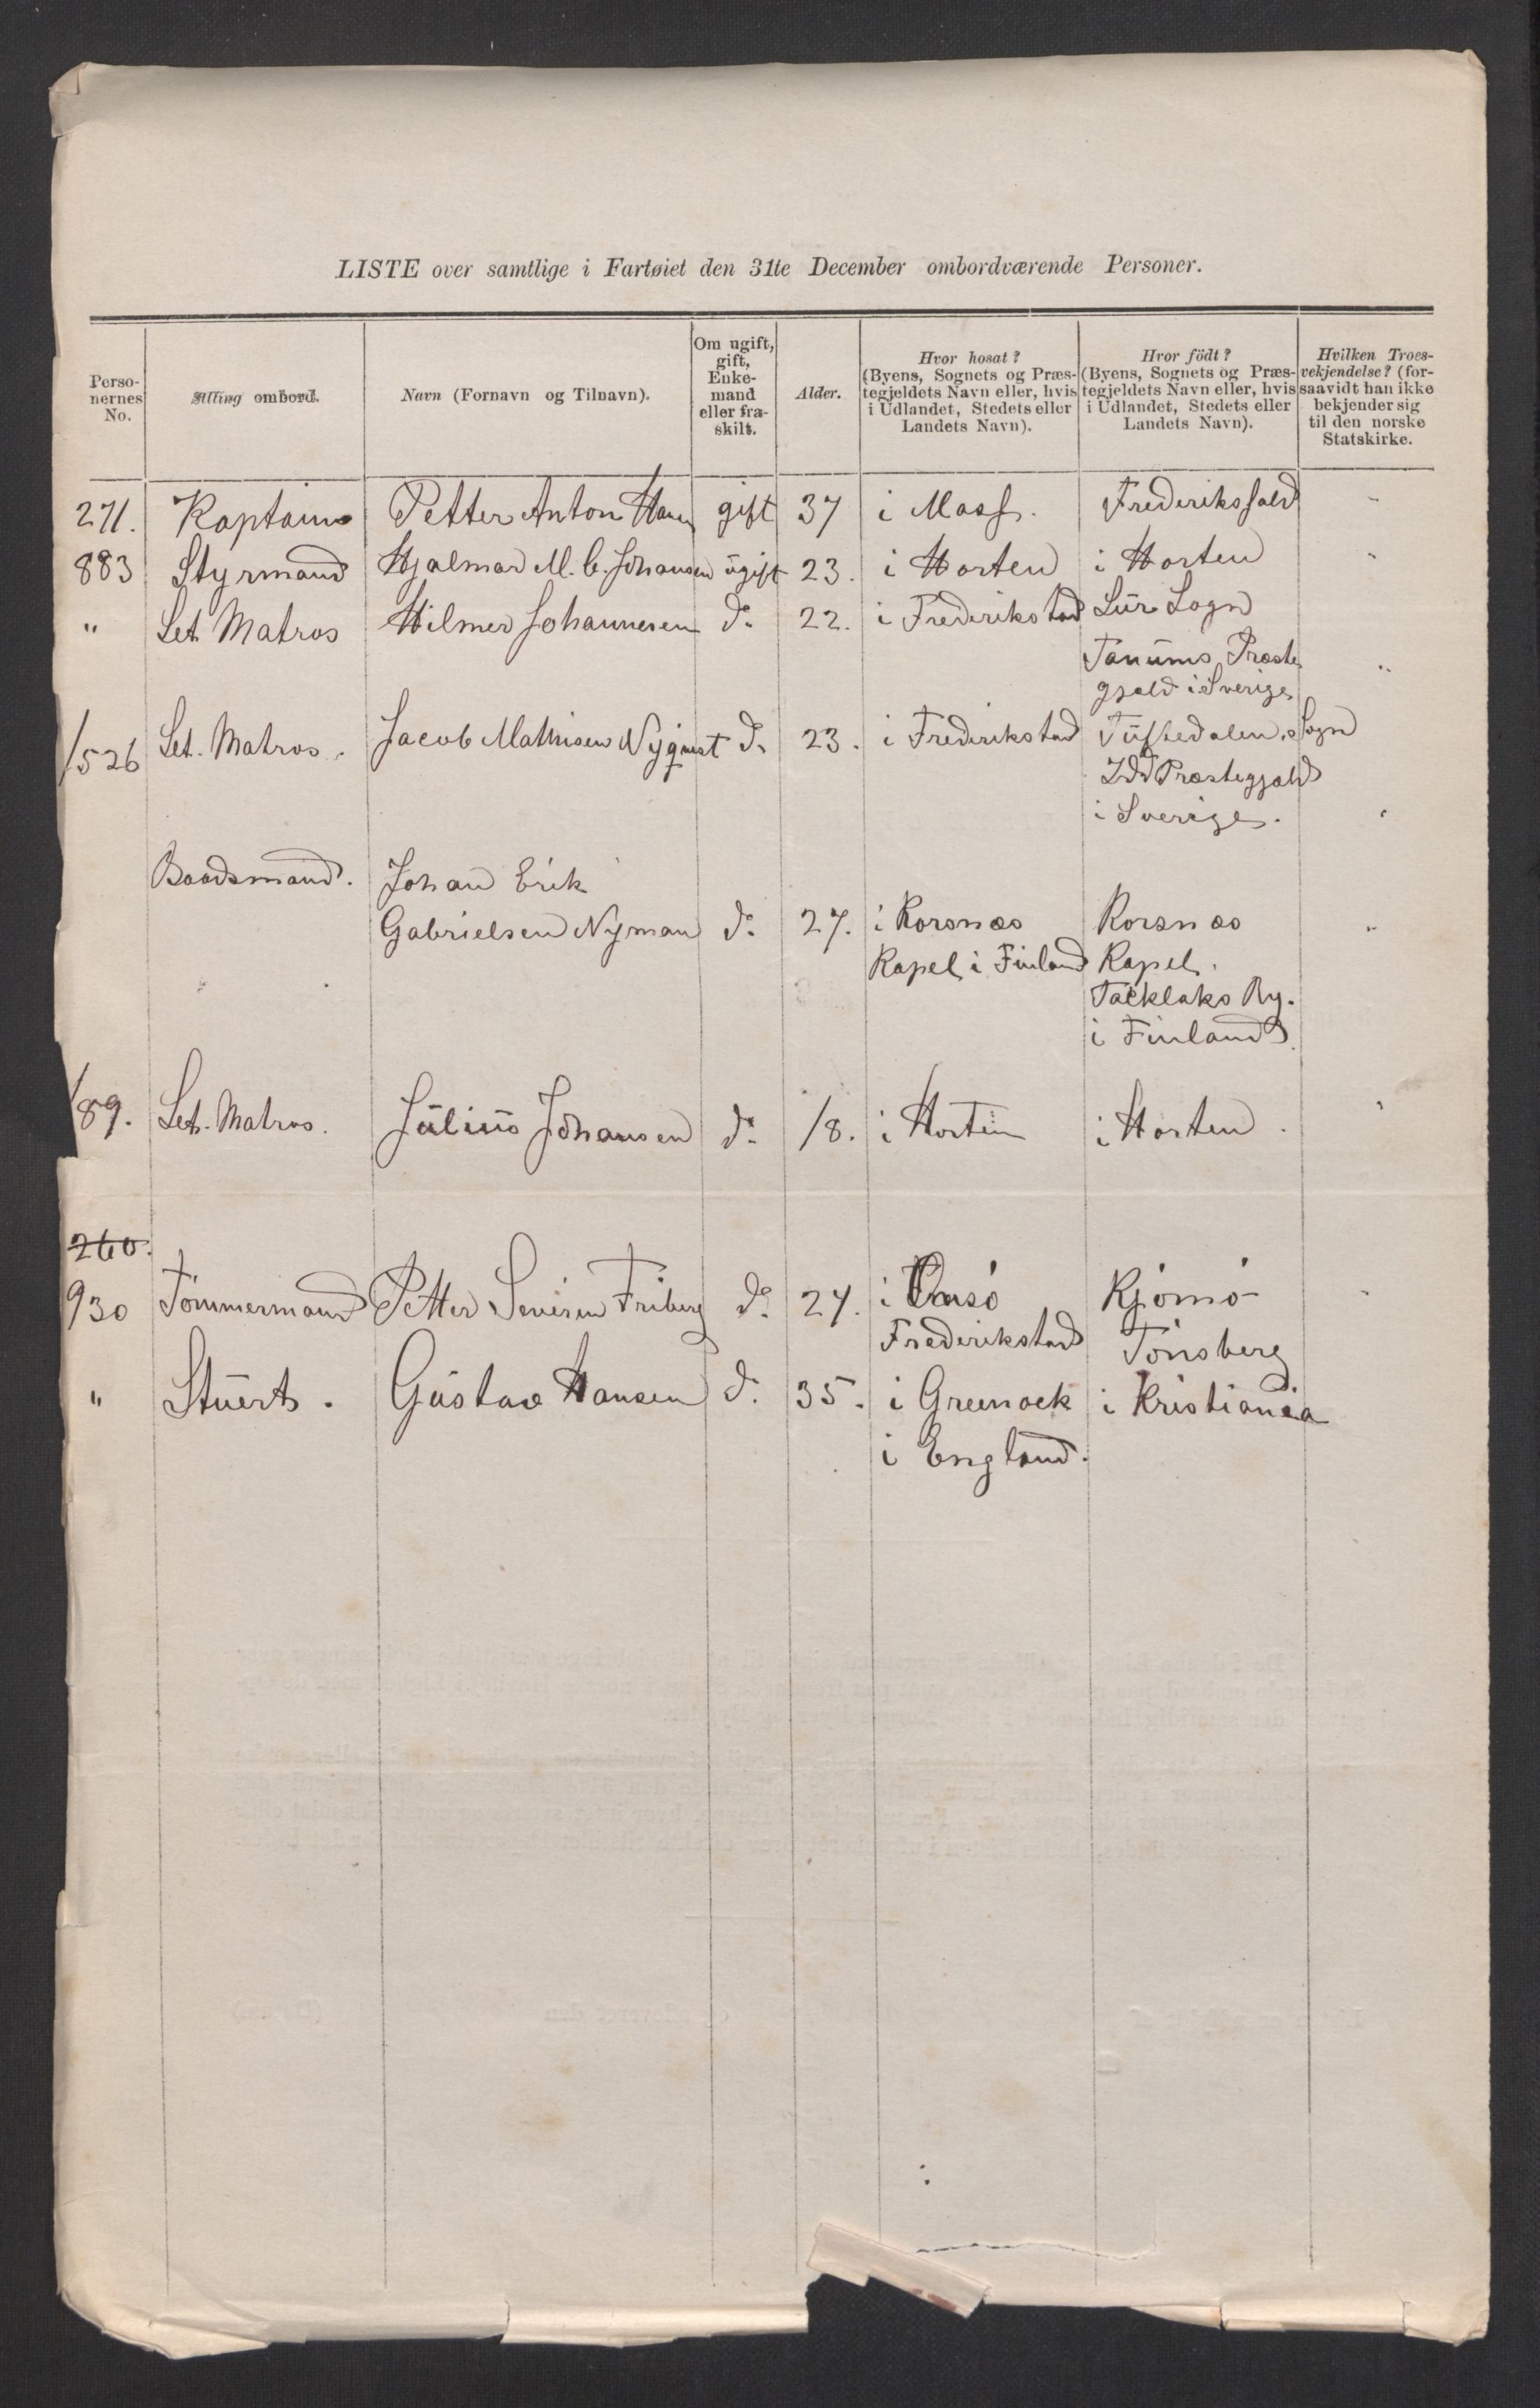 LISTE over samtlige i Fartøiet den 31te December ombordværende Personer.
Perso-
nernes
No.
Stilling ombord.
Navn (Fornavn og Tilnavn).
Om ugift,
gift,
Enke-
mand
eller fra-
skilt.
Alder.
Hvor bosat?
(Byens, Sognets og Præs-
tegjeldets Navn eller, hvis
i Udlandet, Stedets eller
Landets Navn).
Hvor födt?
(Byens, Sognets og Præs-
tegjeldets Navn eller, hvis
i Udlandet, Stedets eller
Landets Navn).
Hvilken Troes-
vekjendelse? (for-
saavidt han ikke
bekjender sig
til den norske
Statskirke.
271. Kaptain Petter Anton Hansen gift 37 i Moss. Frederikshald "
883 Styrmand Hjalmar M. C. Johansen ugift 23. i Horten i Horten "
" Let Matros Hilmer Johannesen do 22. i Frederikstad Lür Sogn
Tanums Præste
gjæld i Sverige "
1526 Let. Matros. Jacob Mathisen Nyqvist do 23. i Frederikstad Tüftedalen, Sogn
Idd Præstegjæld
i Sverige. "
Baadsmand. Johan Erik
Gabrielsen Nyman do 27. i Korsnæs Korsnæs "
Kapel i Finland Kapel.
Täcklaks By.
i Finland
189. Let. Matros. Julius Johansen do 18. i Horten i Horten. "
260.
930 Tömmermand Petter Severin Friberg do 27. i Onsö Kjömö "
Frederikstad Tönsberg
" Stuert. Gustav Hansen do 35. i Greenock i Kristiania
i England.